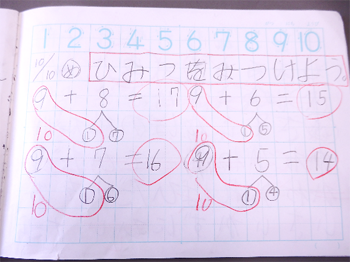 1 2 3 4 5 6 7 8 9 10
10/10 め ひみつをみつけよう。
9 + 8 = 17 9 + 6 = 15
10 1 7 10 1 5
9 + 7 = 16 9 + 5 = 14
10 1 6 10 1 4